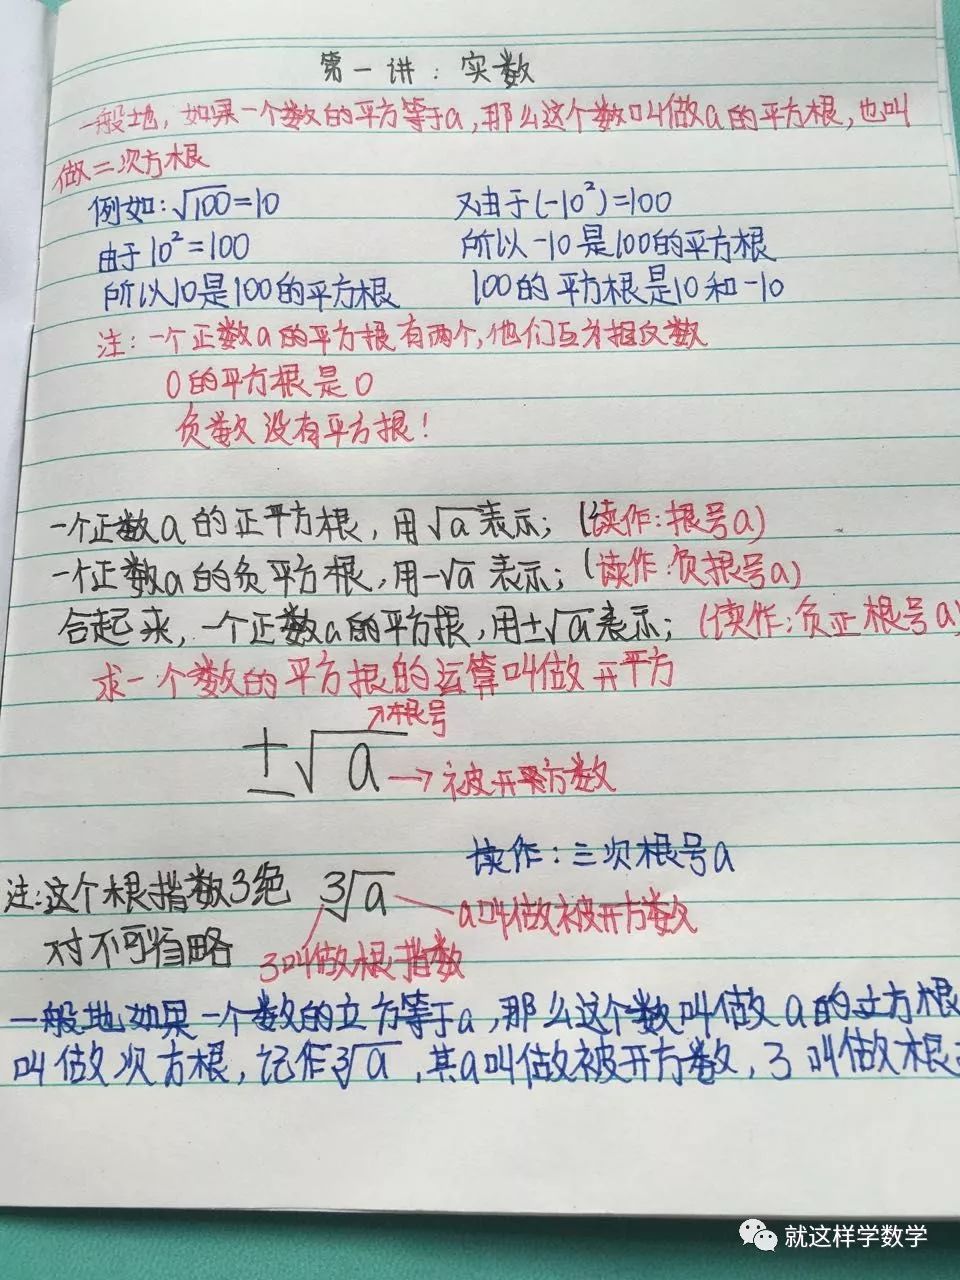 第一讲：实数
一般地，如果一个数的平方等于a，那么这个数叫做a的平方根，也叫
做二次方根
例如：√100=10
由于10²=100
所以10是100的平方根
又由于(-10²)=100
所以-10是100的平方根
100的平方根是10和-10
注：一个正数a的平方根有两个，他们互为相反数
0的平方根是0
负数没有平方根！
一个正数a的正平方根，用√a表示；(读作：根号a)
一个正数a的负平方根，用-√a表示；(读作：负根号a)
合起来，一个正数a的平方根，用±√a表示；(读作：负正根号a)
求一个数的平方根的运算叫做开平方
→根号
±√a→被开平方数
读作：三次根号a
注：这个根指数3绝
对不可省略
³√a
a叫做被开方数
3叫做根指数
一般地如果一个数的立方等于a，那么这个数叫做a的立方根
叫做次方根，记作³√a，其a叫做被开方数，3叫做根
就这样学数学